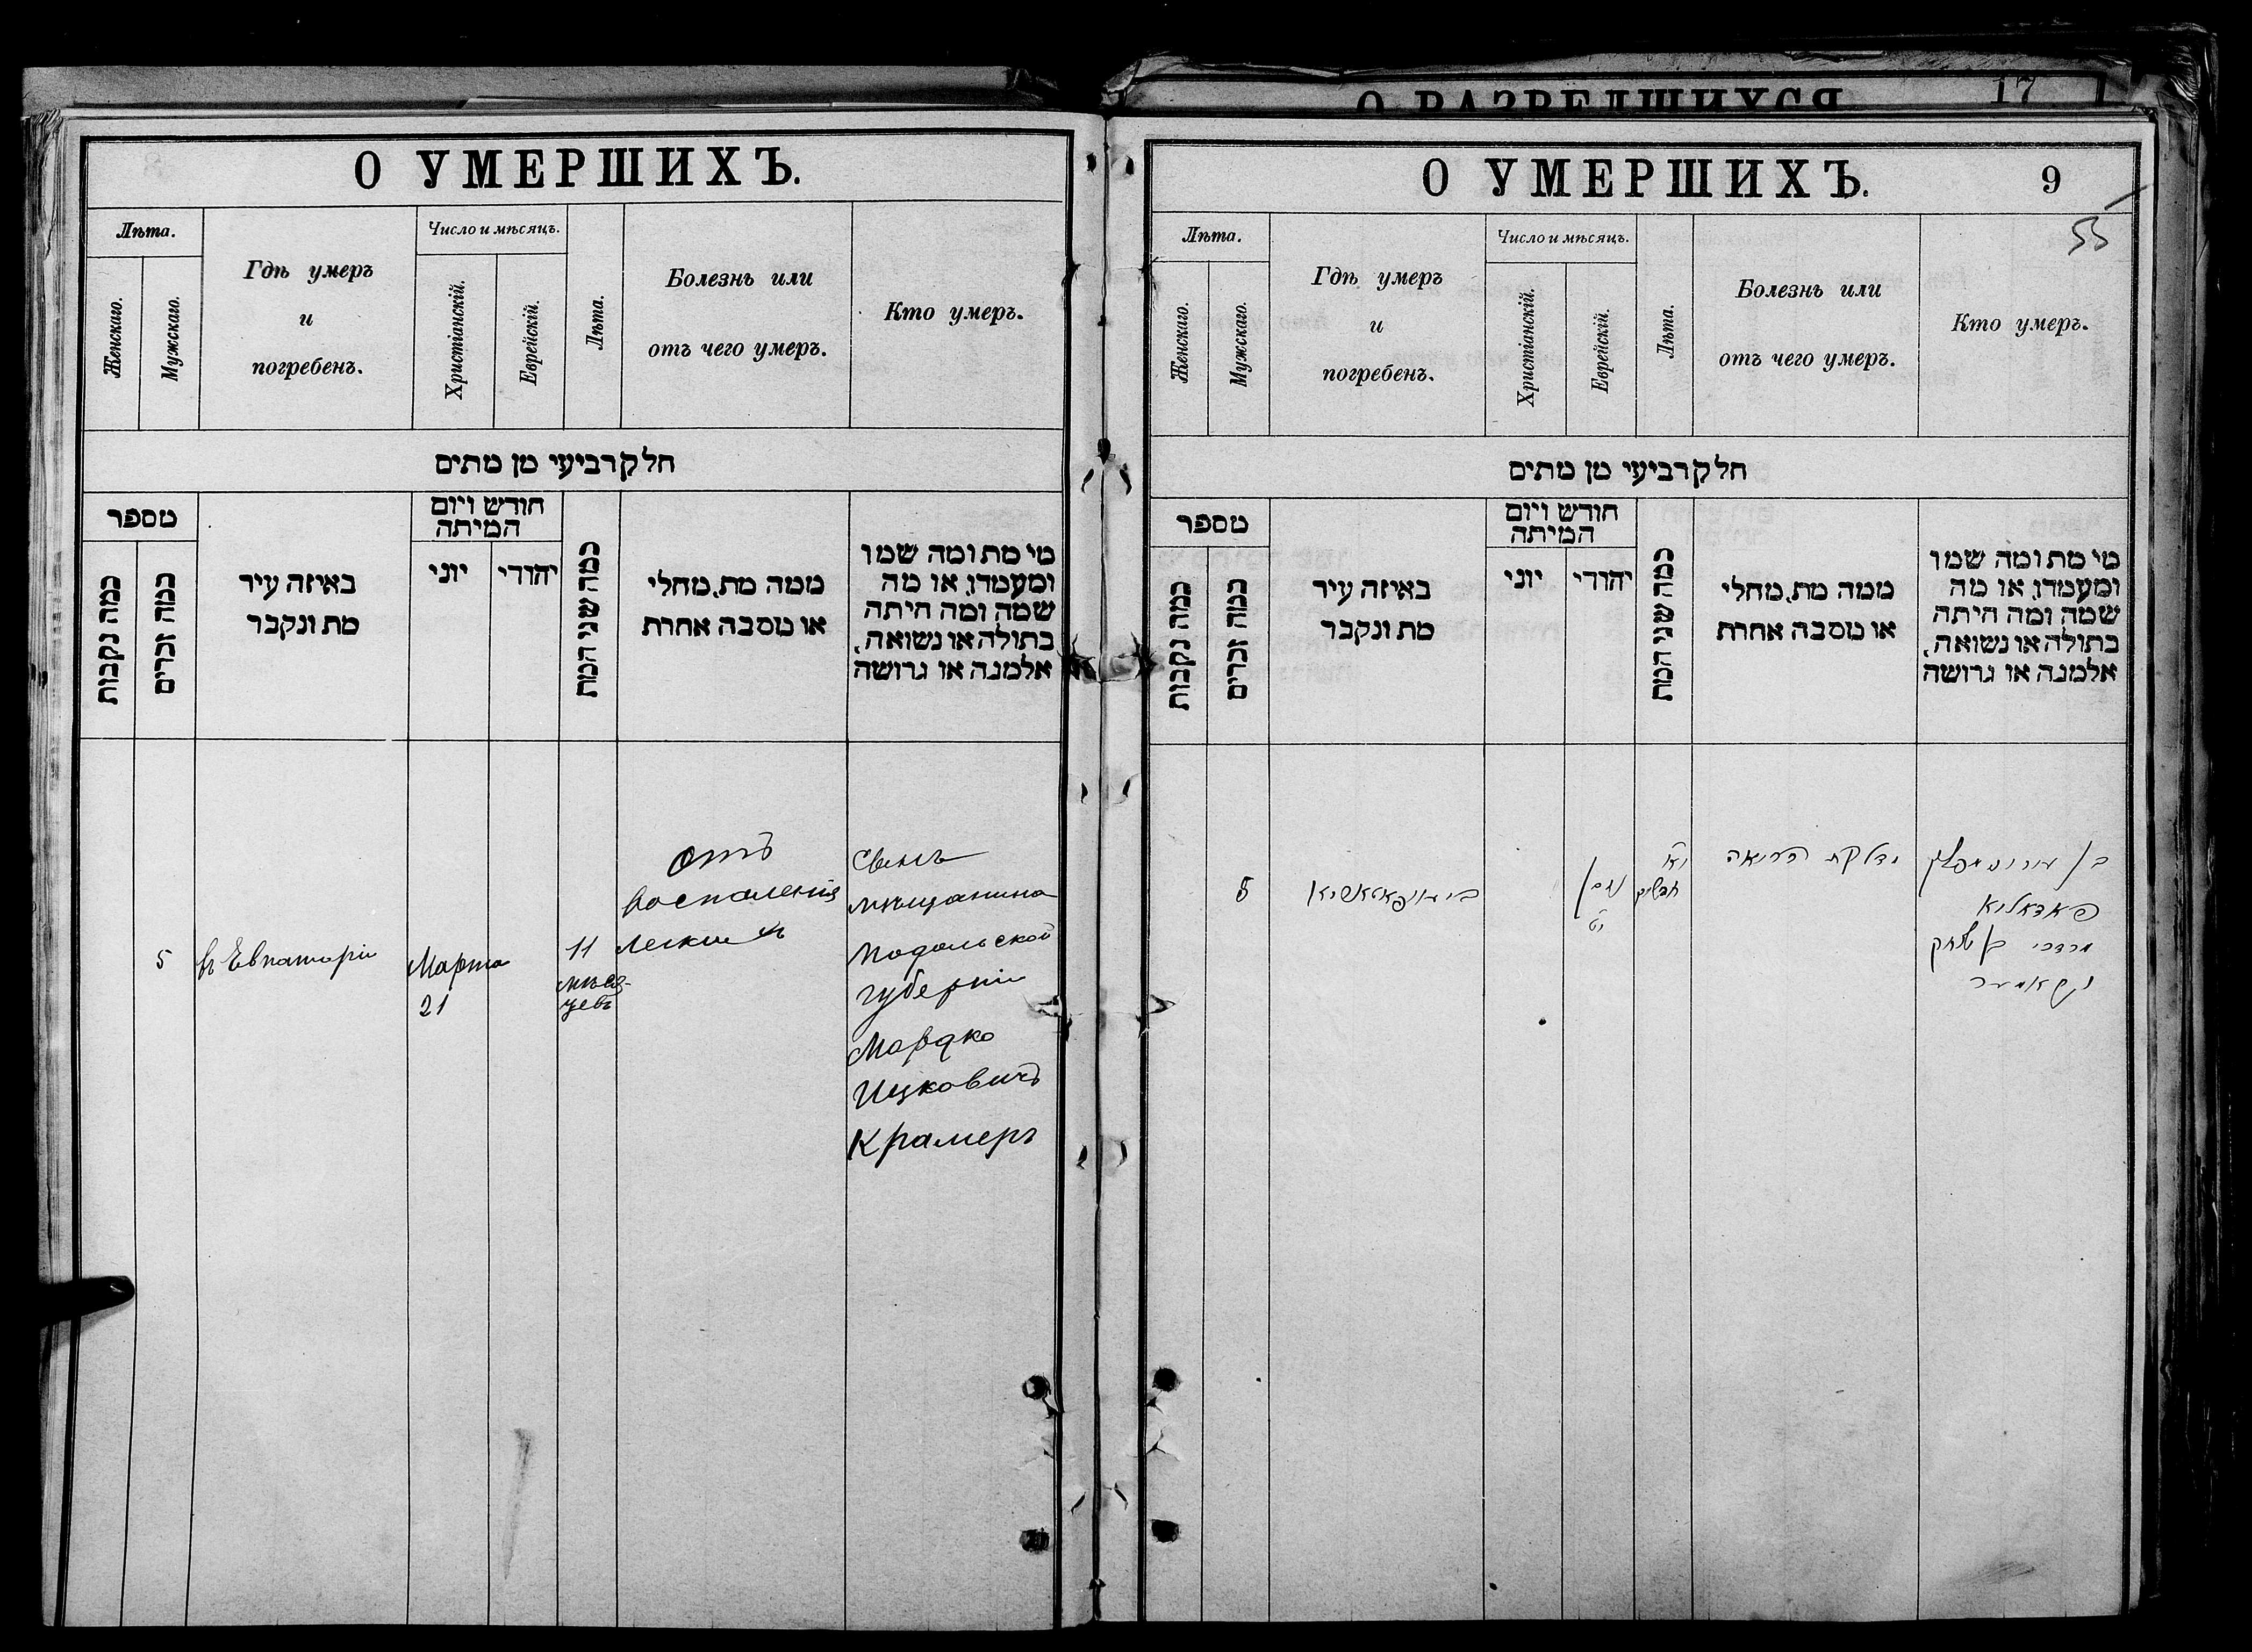 О УМЕРШИХЪ.
Лѣта.
Женскаго.
Мужскаго.
Гдѣ умеръ
и
погребенъ.
Число и мѣсяцъ.
Христіанскій.
Еврейскій.
Лѣта.
Болезнь или
отъ чего умеръ.
Кто умеръ.
חלק רביעי מן מתים
מספר
כמה נקבות
כמה זכרים
באיזה עיר
מת ונקבר
חודש ויום
המיתה
יוני
יהודי
כמה שני המת
ממה מת, מחלי
או מסבה אחרת
מי מת ומה שמו
ומעמדו, או מה
שמה ומה היתה
בתולה או נשואה,
אלמנה או גרושה
5
въ Евпаторіи
Марта
21
11
мѣся-
цевъ
Отъ
воспаленія
легкихъ
Сынъ
мѣщанина
Подольской
губерніи
Мордко
Ицковичъ
Крамеръ
О РАЗВЕДШИХСЯ
17
О УМЕРШИХЪ.
9
55
Лѣта.
Женскаго.
Мужскаго.
Гдѣ умеръ
и
погребенъ.
Число и мѣсяцъ.
Христіанскій.
Еврейскій.
Лѣта.
Болезнь или
отъ чего умеръ.
Кто умеръ.
חלק רביעי מן מתים
מספר
כמה נקבות
כמה זכרים
באיזה עיר
מת ונקבר
חודש ויום
המיתה
יוני
יהודי
כמה שני המת
ממה מת, מחלי
או מסבה אחרת
מי מת ומה שמו
ומעמדו, או מה
שמה ומה היתה
בתולה או נשואה,
אלמנה או גרושה
5
ניסן
י״א
דלקת הריאה
בן
מרדכי בן יצחק
קראמער